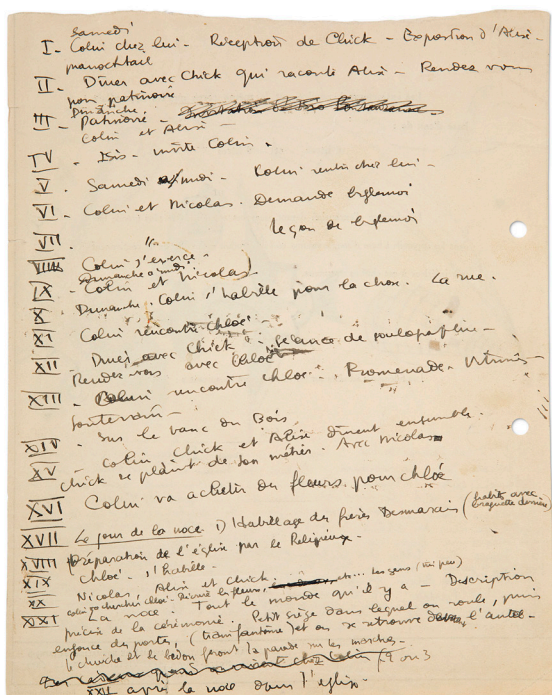 Samedi
I - Colin chez lui - Réception de Chick - Exposition d'Alise -
pianocktail
II - Dîner avec Chick qui raconte Alise - Rendez vous
pour patinoire
Dimanche
III - Patinoire -
Colin et Alise -
IV - Isis - invite Colin -
V - Samedi midi - Colin rentre chez lui -
VI - Colin et Nicolas. Demande biglemoi
VII - " leçon de biglemoi
VIII Colin s'exerce -
Dimanche à midi
IX - Colin et Nicolas)
X Dimanche Colin s'habille pour la chose. La rue.
XI Colin rencontre Chloé
XII - Dîner avec Chick - séance de
Rendez vous avec Chloé
XIII - Colin rencontre Chloé - Promenade - Vitrines -
Souterrain -
XIV - Sur le banc du Bois
XV - Colin Chick et Alise dînent ensemble.
Chick se plaint de son métier. Avec Nicolas
XVI Colin va acheter des fleurs pour Chloé
XVII Le jour de la noce - 1) Habillage des frères Desmarais (habits avec
braguette derrière)
XVIII Préparation de l'église par le Religieux -
XIX Chloé s'habille -
XX Nicolas, Alise et Chick etc... Les gens (un peu)
Colin va chercher Chloé
XXI La noce - Tout le monde qu'il y a - Description
précise de la cérémonie. Petit siège dans lequel on roule, puis
enfonce des portes, (train fantôme) et on se retrouve devant l'autel -
le chuiche et le bedon feront la parade sur les marches -
chez Colin (9 ou 3
XXII après la noce dans l'église -